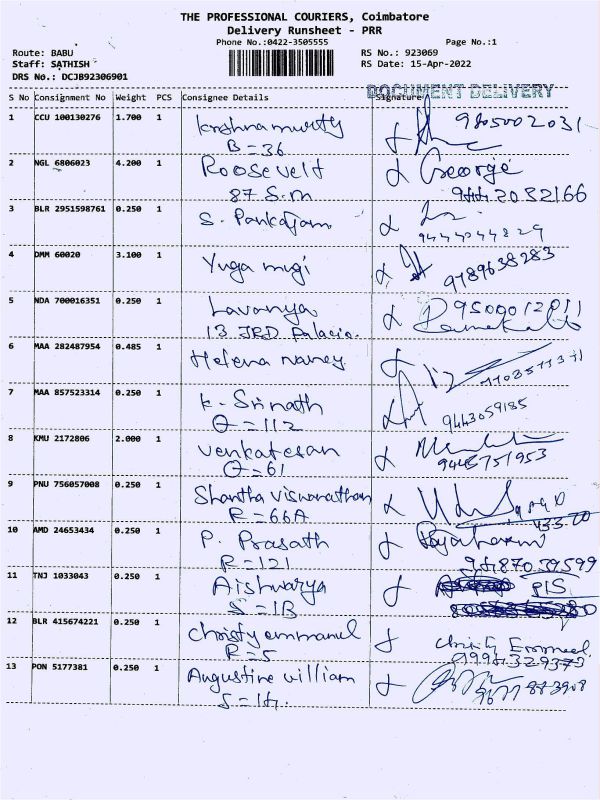 THE PROFESSIONAL COURIERS, Coimbatore
Delivery Runsheet - PRR
Phone No.:0422-3505555
Page No.:1
Route: BABU
RS No.: 923069
Staff: SATHISH
RS Date: 15-Apr-2022
DRS No.: DCJB92306901
DOCUMENT DELIVERY
S No Consignment No Weight PCS Consignee Details Signature
1 CCU 100130276 1.700 1 Krishnamurty 9805002031
B=36
2 NGL 6806023 4.200 1 Roosevelt George
87 S.M 9442032166
3 BLR 2951598761 0.250 1 S. Pankajam
9444044829
4 DMM 60020 3.100 1 Yuga mugi 9789638283
5 NDA 700016351 0.250 1 Lavanya 9500012011
13 JRD Palacio.
6 MAA 282487954 0.485 1 Helena Nancy
7 MAA 857523314 0.250 1 K. Srinath
Q=112 9443059185
8 KMU 2172806 2.000 1 Venkatesan
Q=61 9445751953
9 PNU 756057008 0.250 1 Shantha Viswanathan
R=66A
10 AMD 24653434 0.250 1 P. Prasath
R=121 9487039599
11 TNJ 1033043 0.250 1 Aishwarya
S=1B
12 BLR 415674221 0.250 1 Christy emmanuel Christy
R=5 9994329373
13 PON 5177381 0.250 1 Augustine william 9677883908
S=14.